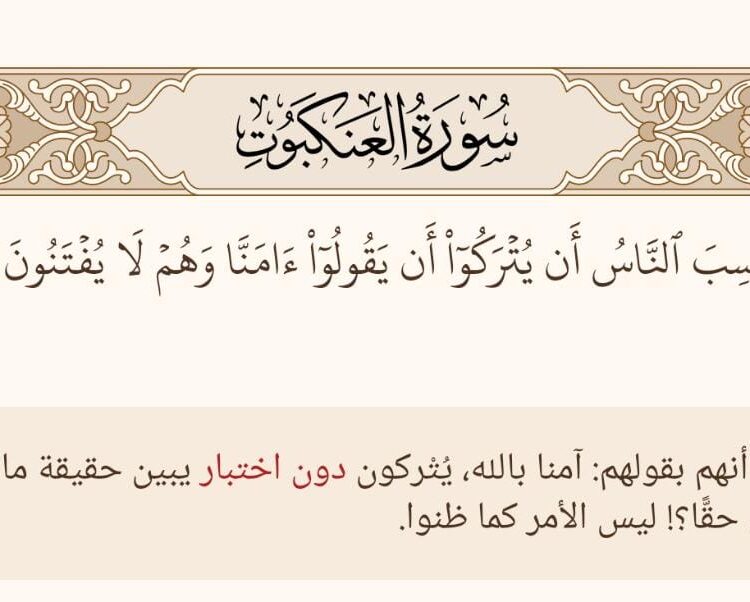 سُورَةُ العَنكَبُوتِ
سِبَ ٱلنَّاسُ أَن يُتۡرَكُوٓاْ أَن يَقُولُوٓاْ ءَامَنَّا وَهُمۡ لَا يُفۡتَنُونَ
أنهم بقولهم: آمنا بالله، يُتْركون دون اختبار يبين حقيقة ما
حقًّا؟! ليس الأمر كما ظنوا.